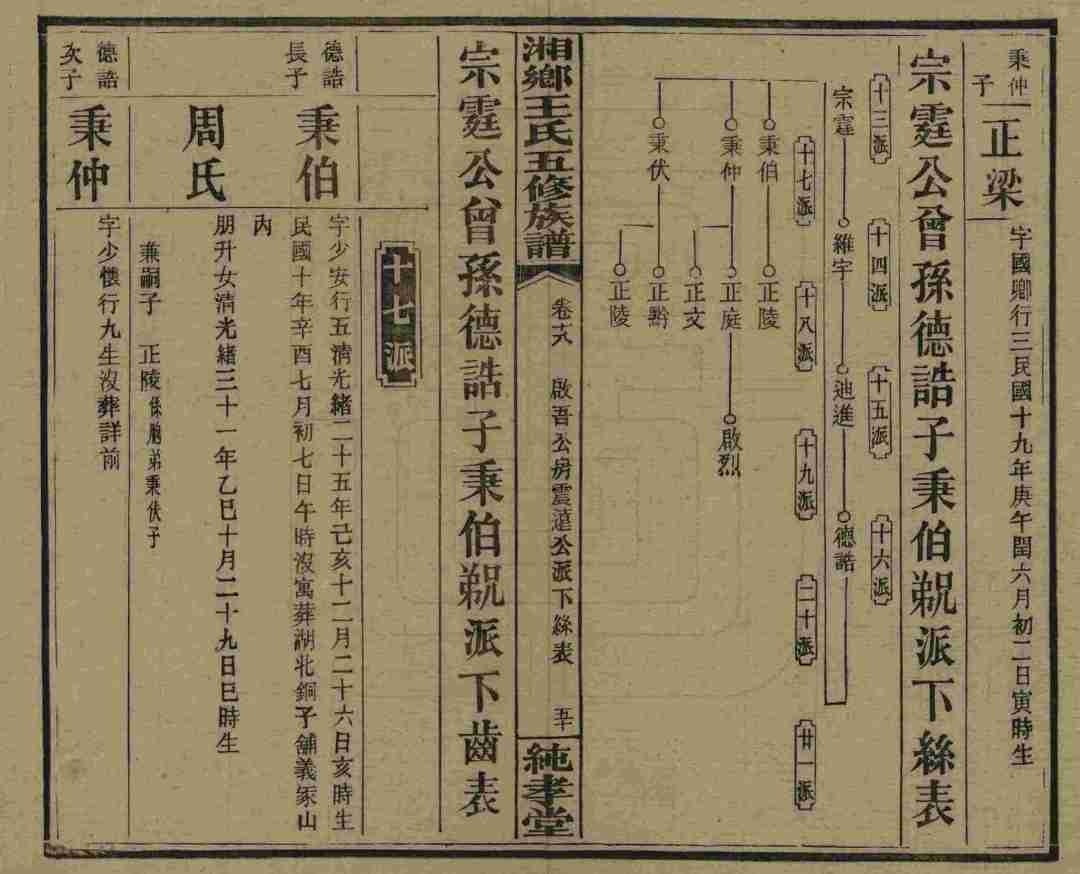 秉仲子
正梁
字國卿行三民國十九年庚午閏六月初二日寅時生
宗霆公曾孫德誥子秉伯覜派下絲表
十三派
十四派
十五派
十六派
宗霆
維字
迪進
德誥
十七派
十八派
十九派
二十派
廿一派
秉伯
正陵
秉仲
正庭
啟烈
正文
秉伏
正黔
正陵
湘鄉王氏五修族譜
啟吾公房震蓮公派下絲表
純孝堂
宗霆公曾孫德誥子秉伯覜派下齒表
十七派
德誥長子
秉伯
字少安行五清光緒二十五年己亥十二月二十六日亥時生
民國十年辛酉七月初七日午時沒寓葬湖北銅子舖義冢山
內
周氏
朋升女清光緒三十一年乙巳十月二十九日巳時生
兼嗣子 正陵 係胞弟秉伏子
德誥次子
秉仲
字少懷行九生沒葬詳前